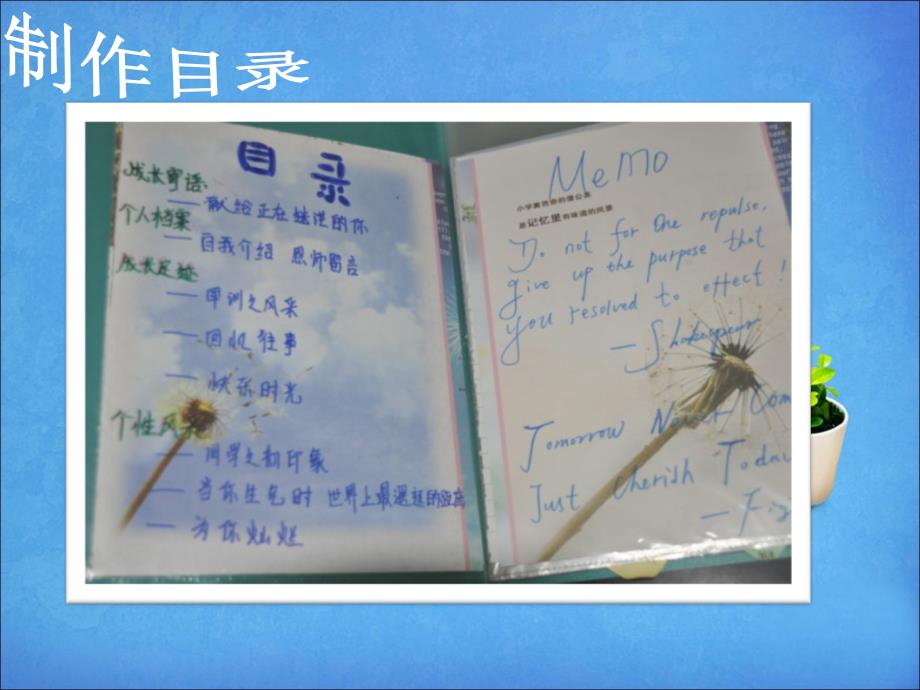 制作目录
目录
成长寄语:
— 献给正在蜕变的你
个人档案
— 自我介绍 恩师留言
成长足迹
— 军训之风采
— 回忆往事
— 快乐时光
个性风采
— 同学之初印象
— 当你生气时 世界上最遥远的距离
— 为你灿烂
Memo
小学篱笆旁的蒲公英
是记忆里有味道的风景
Do not for one repulse,
give up the purpose that
you resolved to effect!
— Shakespear
Tomorrow Never Com
Just Cherish Today